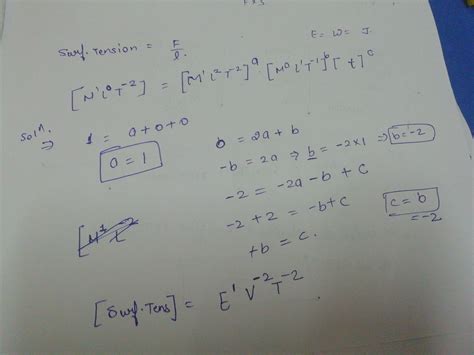 Surf. Tension = F/l. E = W = J.
[M¹L⁰T⁻²] = [M¹L²T⁻²]ᵃ [M⁰L¹T⁻¹]ᵇ [t]ᶜ
Solⁿ.
⇒ 1 = a+0+0
a = 1
0 = 2a + b
-b = 2a ⇒ b = -2×1 ⇒ b=-2
-2 = -2a - b + c
-2+2 = -b+c
+b = c.
c = b
= -2
[Surf. Tens] = E¹ V⁻² T⁻²